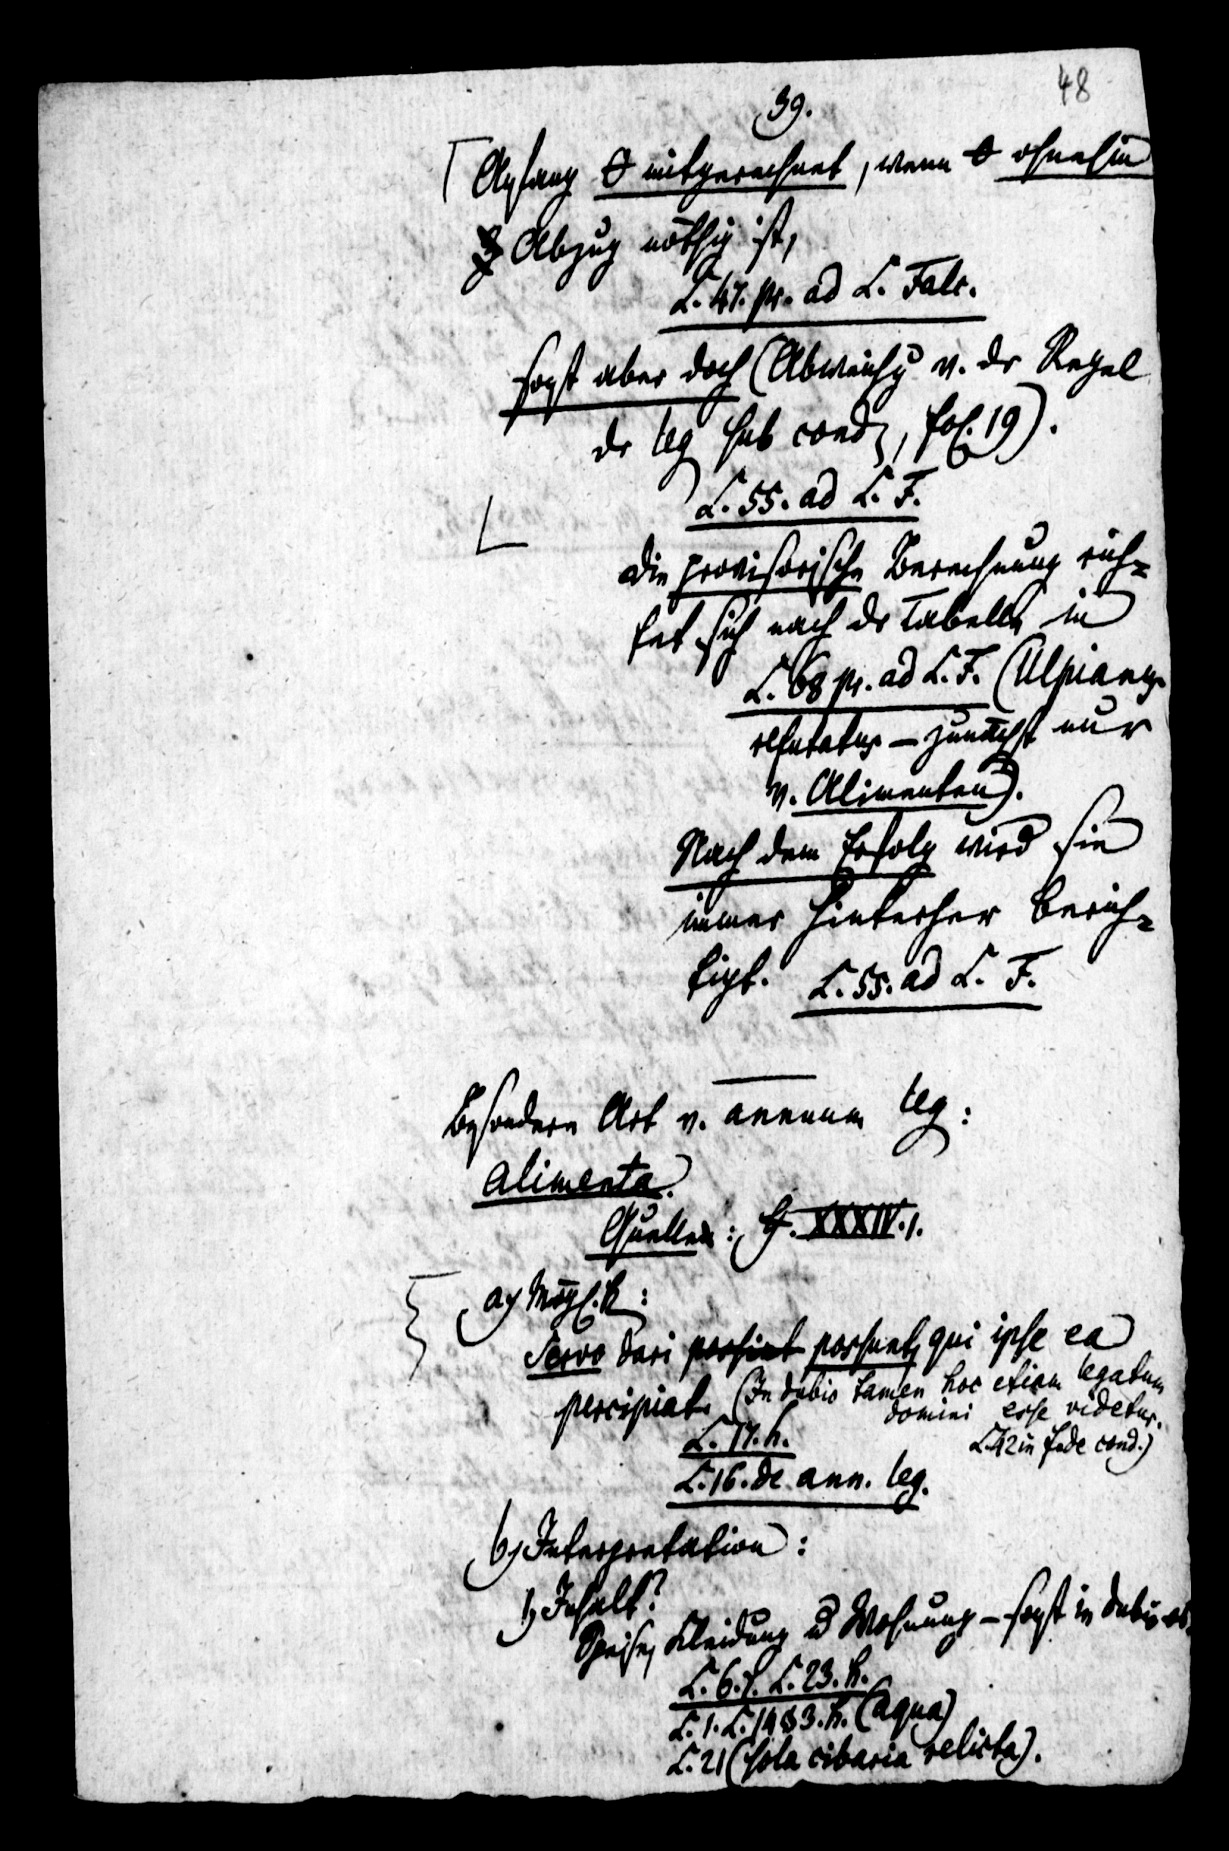 48
39.
Anfang θ mitgerechnet, wenn θ ohnehin
Abzug nöthig ist,
L. 47. pr. ad L. Falc.
sonst aber doch (Abweichg v. dr Regel
dr leg sub cond, fol. 19).
L. 55. ad L. F.
die provisorische Berechnung rich=
tet sich nach dr Tabelle in
L. 68 pr. ad L. F. (Ulpians
refutatus — zunächst nur
v. Alimenten).
Nach dem Erfolg wird sie
immer hinterher berich=
tigt. L. 55. ad L. F.
Besondere Art v. annuum leg:
alimenta.
Quellen: XXXIV. 1.
a) Mögl.k:
Servo dari possint possunt, qui ipse ea
percipiat. (In dubio tamen hoc etiam legatum
domini esse videtur.
L. 42 in fide cond.)
L. 17. h.
L. 16. de ann. leg.
b) Interpretation:
1) Inhalt?
Speise, Kleidung u Wohnung — sonst in dubio
L. 6. L. 23. h.
L. 1. L. 14 § 3. h. (aqua)
L. 21 (sola cibaria relicta).